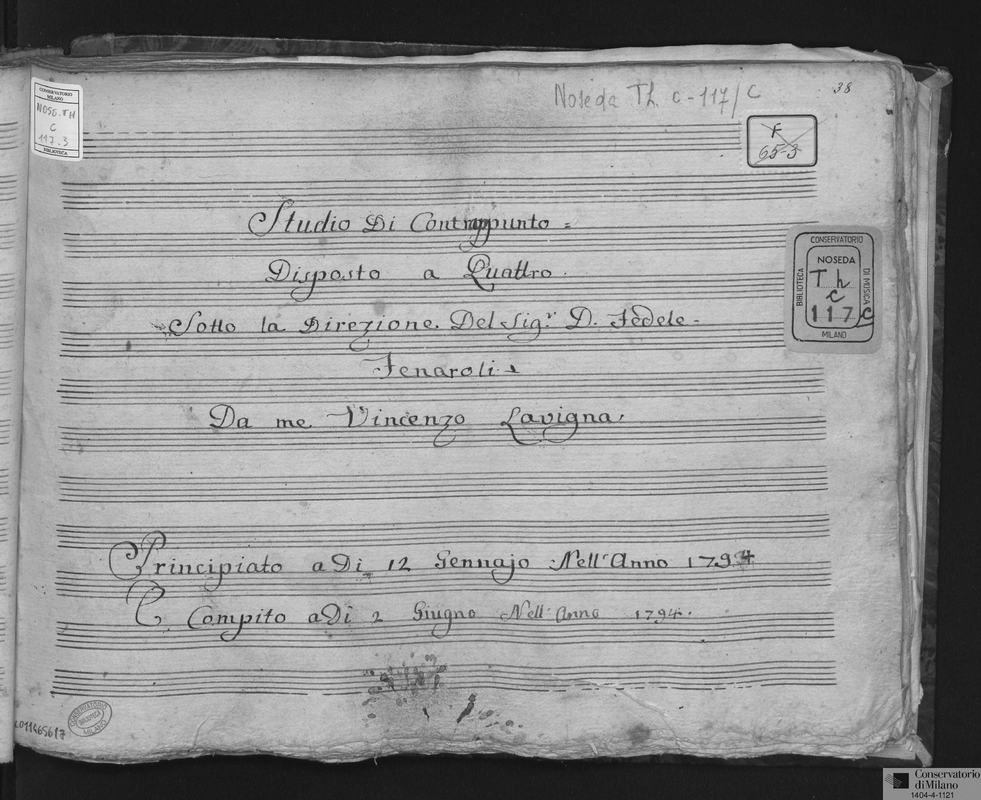 Noseda Th. c-117/C
38
CONSERVATORIO
MILANO
NOSE.TH
C
117.3
BIBLIOTECA
F
65-3
Studio Di Contrappunto =
Disposto a Quattro.
Sotto la Direzione. Del Sig.r D. Fedele -
Fenaroli
Da me Vincenzo Lavigna.
CONSERVATORIO
BIBLIOTECA
NOSEDA
Th
c
117c
DI MUSICA
MILANO
Principiato a Di 12 Gennajo Nell'Anno 1794
E Compito a Di 2 Giugno Nell'Anno 1794.
CONSERVATORIO
BIBLIOTECA
MILANO
Conservatorio
di Milano
1404-4-1121